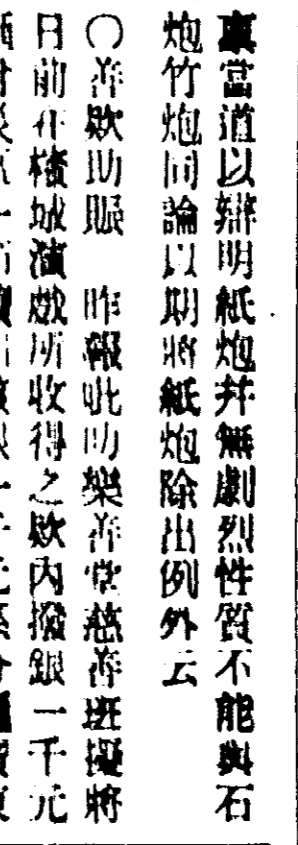 稟當道以辯明紙炮并無劇烈性質不能與石
炮竹炮同論以期將紙炮除出例外云
○善欵助賑　昨報吡叻樂善堂慈善班擬將
日前在檳城演戲所收得之欵內撥銀一千元